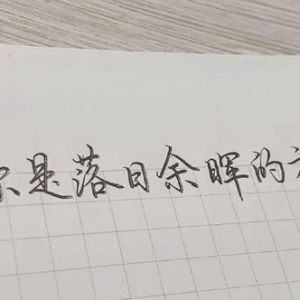 是落日余晖的